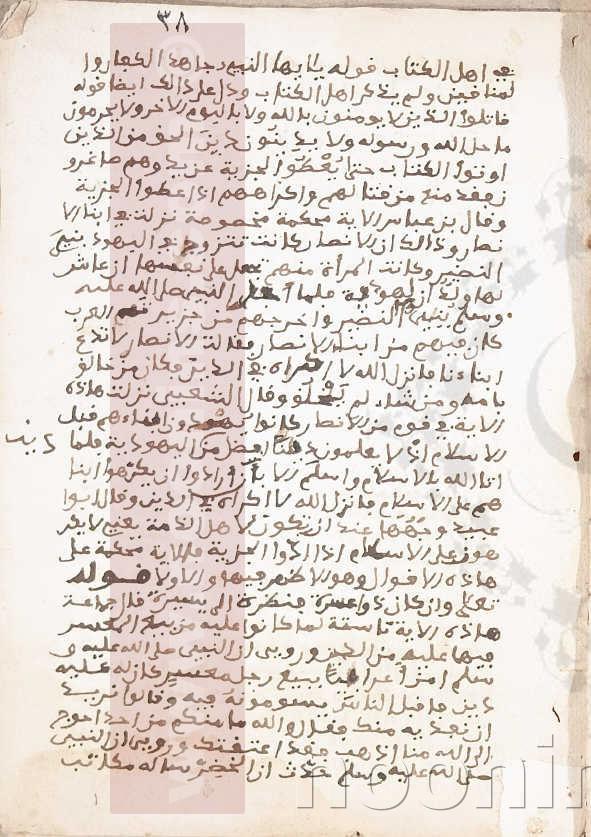 ٣٨
في اهل الكتاب قوله يا ايها النبي جاهد الكفار وا
لمنافقين ولم يذكر اهل الكتاب ودل على ذالك ايضا قوله
قاتلوا الذين لا يومنون بالله ولا باليوم الاخر ولا يحرمون
ما حرم الله ورسوله ولا يدينون دين الحق من الذين
اوتوا الكتاب حتى يعطوا الجزية عن يد وهم صاغرو
ن فقد منع من قتالهم واكراههم اذا اعطوا الجزية
وقال بن عباس الاية محكمة مخصوصة نزلت في ابنا الا
نصار وذالك ان الانصار كانت تتزوج في اليهود بني
النضير وكانت المرأة منهم تجعل على نفسها ان عاش
لها ولد ان تهوده فلما اجلى النبي صلى الله عليه
وسلم بني النضير واخرجهم من جزيرة العرب
كان فيهم من ابناء الانصار فقالت الانصار لا ندع
ابناءنا فانزل الله لا اكراه في الدين فكان من خالق
بامه ومن شاء لم يلحق وقال الشعبي نزلت هاذه
الاية في قوم من الانصار كانوا يهودوا ابناءهم قبل
الاسلام اذ لا يعلمون دينا افضل من اليهودية فلما دينا
اتا الله بالاسلام واسلم الاباء ارادوا ان يكرهوا ابنا
هم على الاسلام فانزل الله لا اكراه في الدين وقال ابوا
عبيد وجهها عندي ان تكون لاهل الذمة يعني لا يكر
هون على الاسلام اذا ادوا الجزية فالاية محكمة على
هاذه الاقوال وهو الاظهر فيها والاولى قوله
تعلى وان كان ذو عسرة فنظرة الى ميسرة قال جماعة
هاذه الاية ناسخة لما كانوا عليه من بيع المعسر
فيما عليه من الدين وروي ان النبي صلى الله عليه و
سلم امر اعرابيا ببيع رجل معسر كان له عليه
دين فاقبل الناس يسومونه فيه وقالوا نريد
ان نفديه منك فقال والله ما منكم من احد احوج
الى الله منا اذهب فقد اعتقتك وروي ان النبي
صلى الله عليه وسلم حدث ان الخضر ساله مكاتب